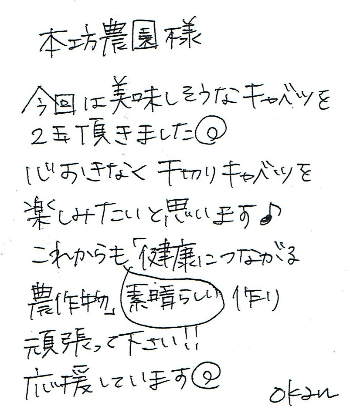 本坊農園様
今回は美味しそうなキャベツを
2玉頂きました
心おきなく千切りキャベツを
楽しみたいと思います♪
これからも「健康につながる
農作物」素晴らしい作り
頑張って下さい!!
応援しています
okan